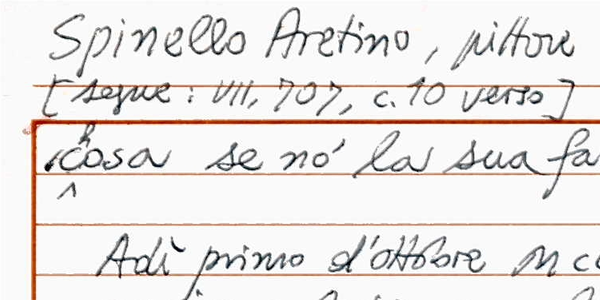 Spinello Aretino, pittore
[segue: VII, 707, c. 10 verso]
chosa se no' la sua fa
Adì primo d'ottobre MCC